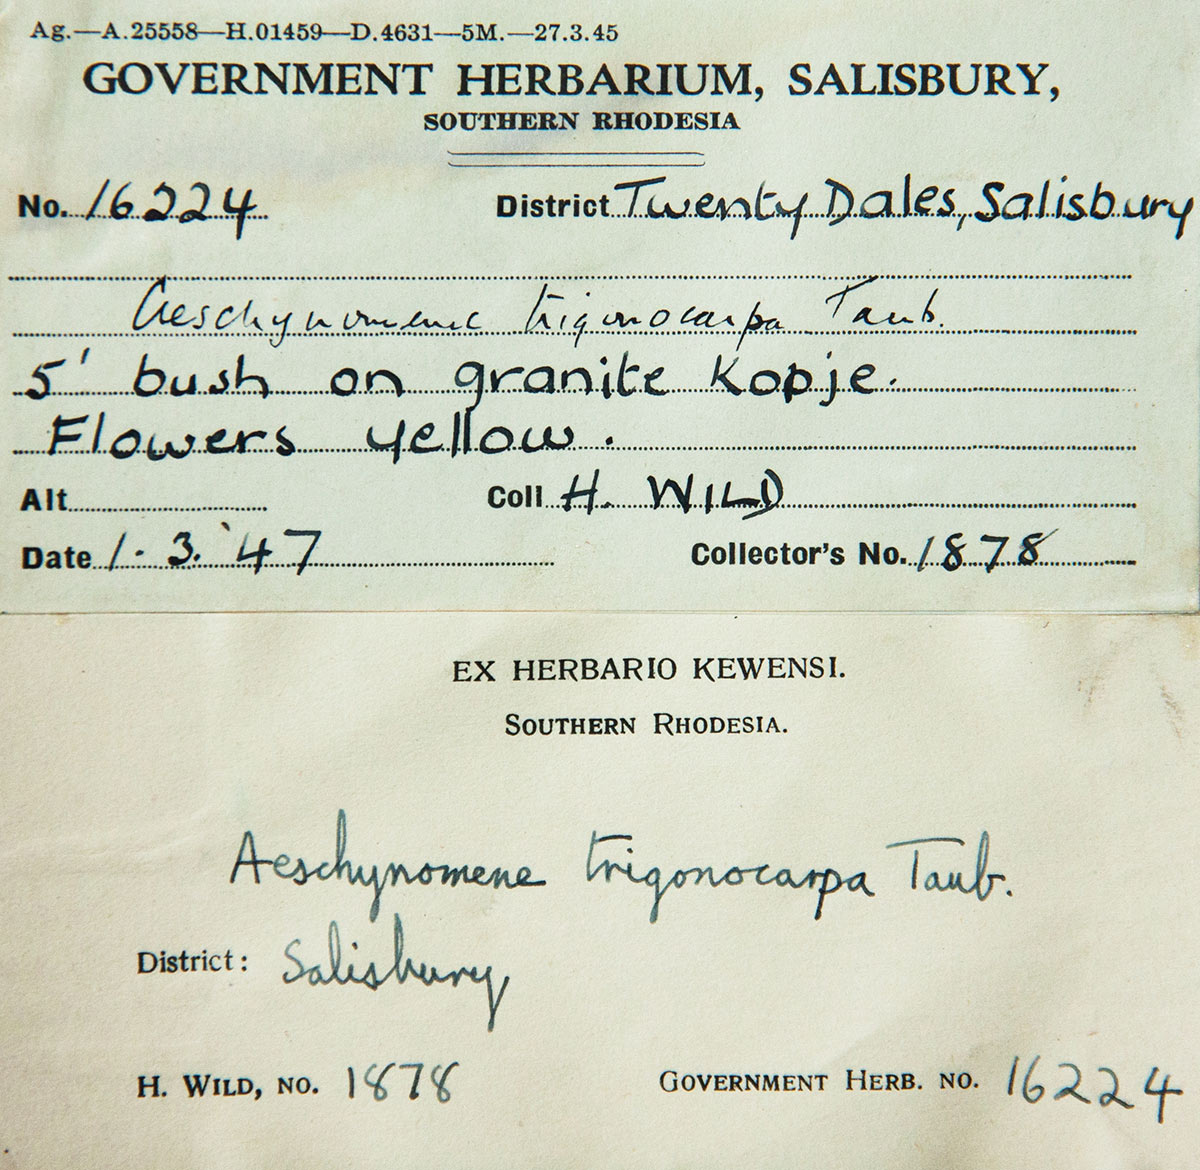 Ag.—A.25558—H.01459—D.4631—5M.—27.3.45
GOVERNMENT HERBARIUM, SALISBURY,
SOUTHERN RHODESIA
No. 16224 District Twenty Dales, Salisbury
Aeschynomene trigonocarpa Taub.
5' bush on granite Kopje.
Flowers yellow.
Alt Coll H. WILD
Date 1. 3. '47 Collector's No. 1878
EX HERBARIO KEWENSI.
SOUTHERN RHODESIA.
Aeschynomene trigonocarpa Taub.
District: Salisbury
H. WILD, NO. 1878 GOVERNMENT HERB. NO. 16224